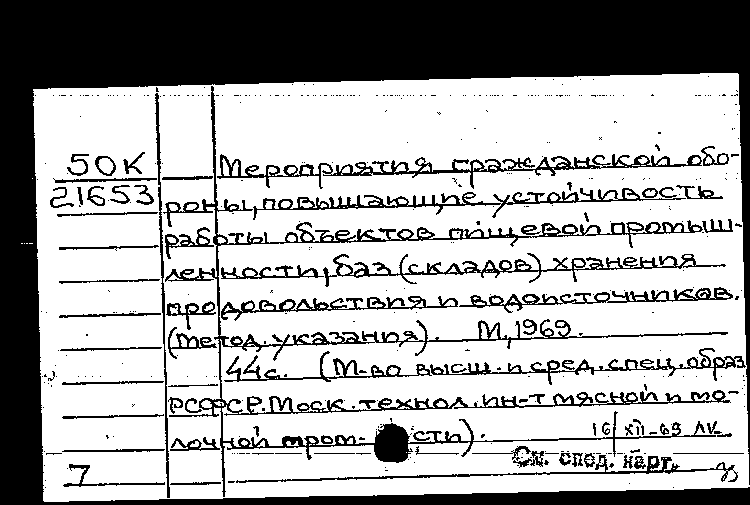 50К
21653
Мероприятия гражданской обо-
роны, повышающие устойчивость
работы объектов пищевой промыш-
ленности, баз (складов) хранения
продовольствия и водоисточников.
(Метод. указания). М, 1969.
44с. (М-во высш. и сред. спец. образ
РСФСР. Моск. технол. ин-т мясной и мо-
лочной пром- сти).
16/XII-69 ЛК
См. след. карт.
7